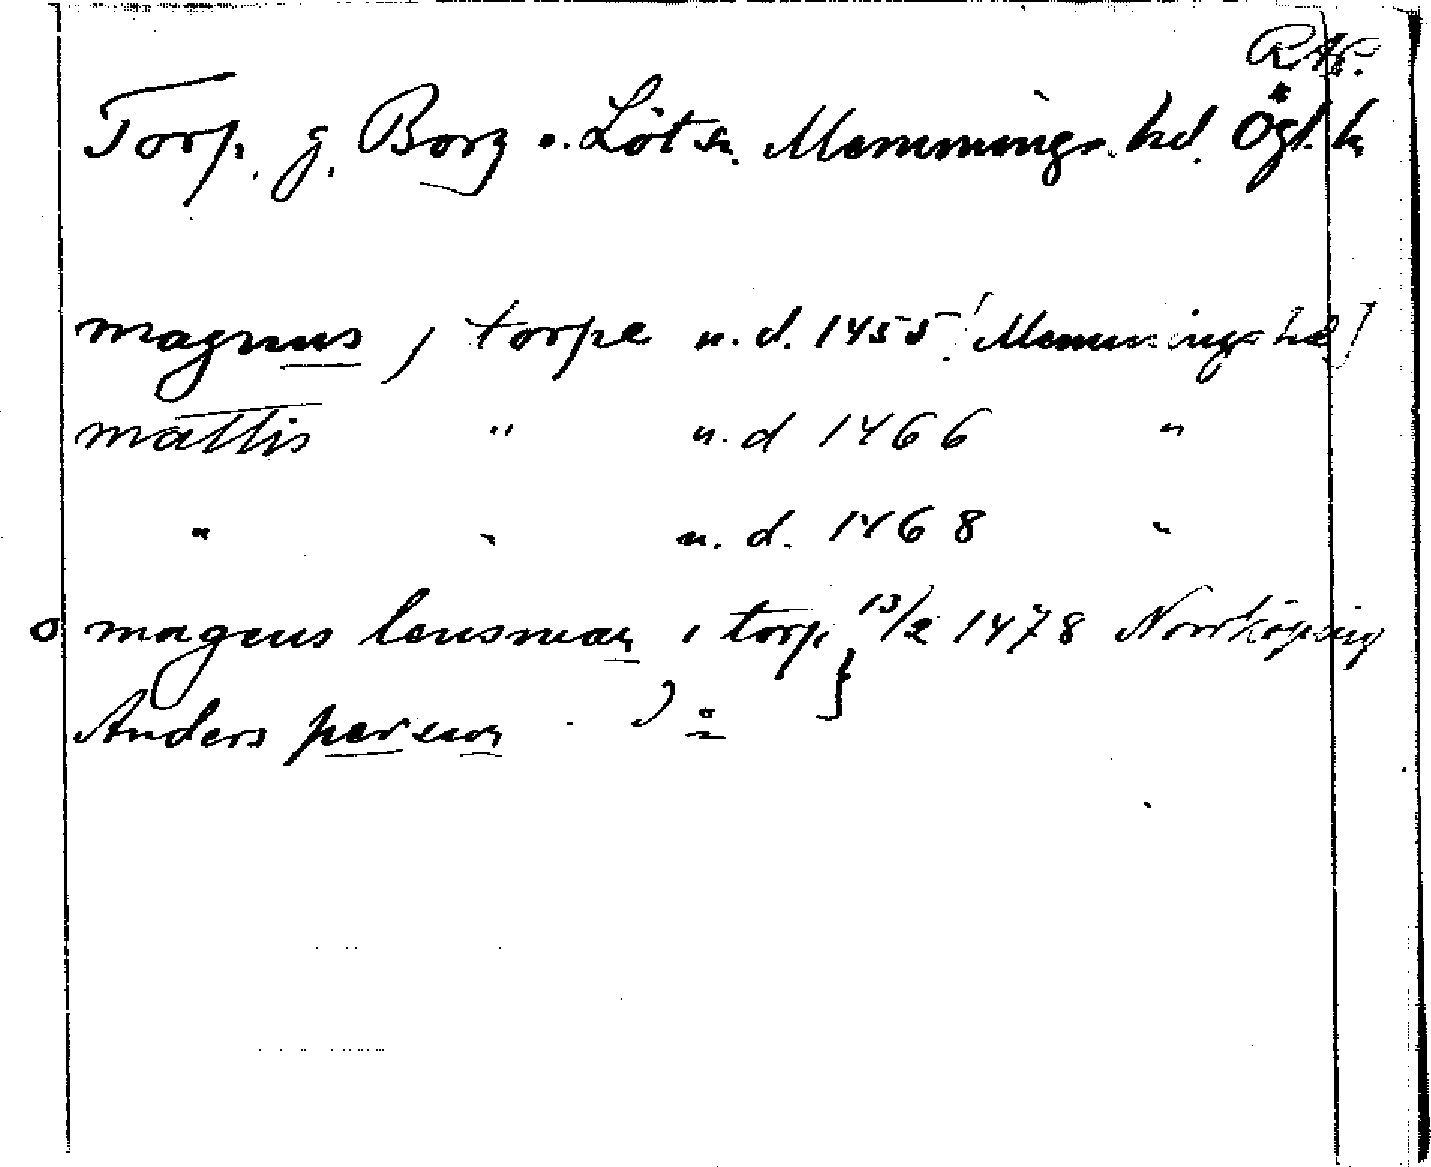 RAP.
Torp. g. Borg o. Löt sn. Memmings hd. Ögl. h
magnus j torpe u.d. 1455 [Memmings hd]
mattis " u.d 1466 "
" " u.d. 1468 "
o magnus lensman i torp 13/2 1478 Norrköping
Anders person